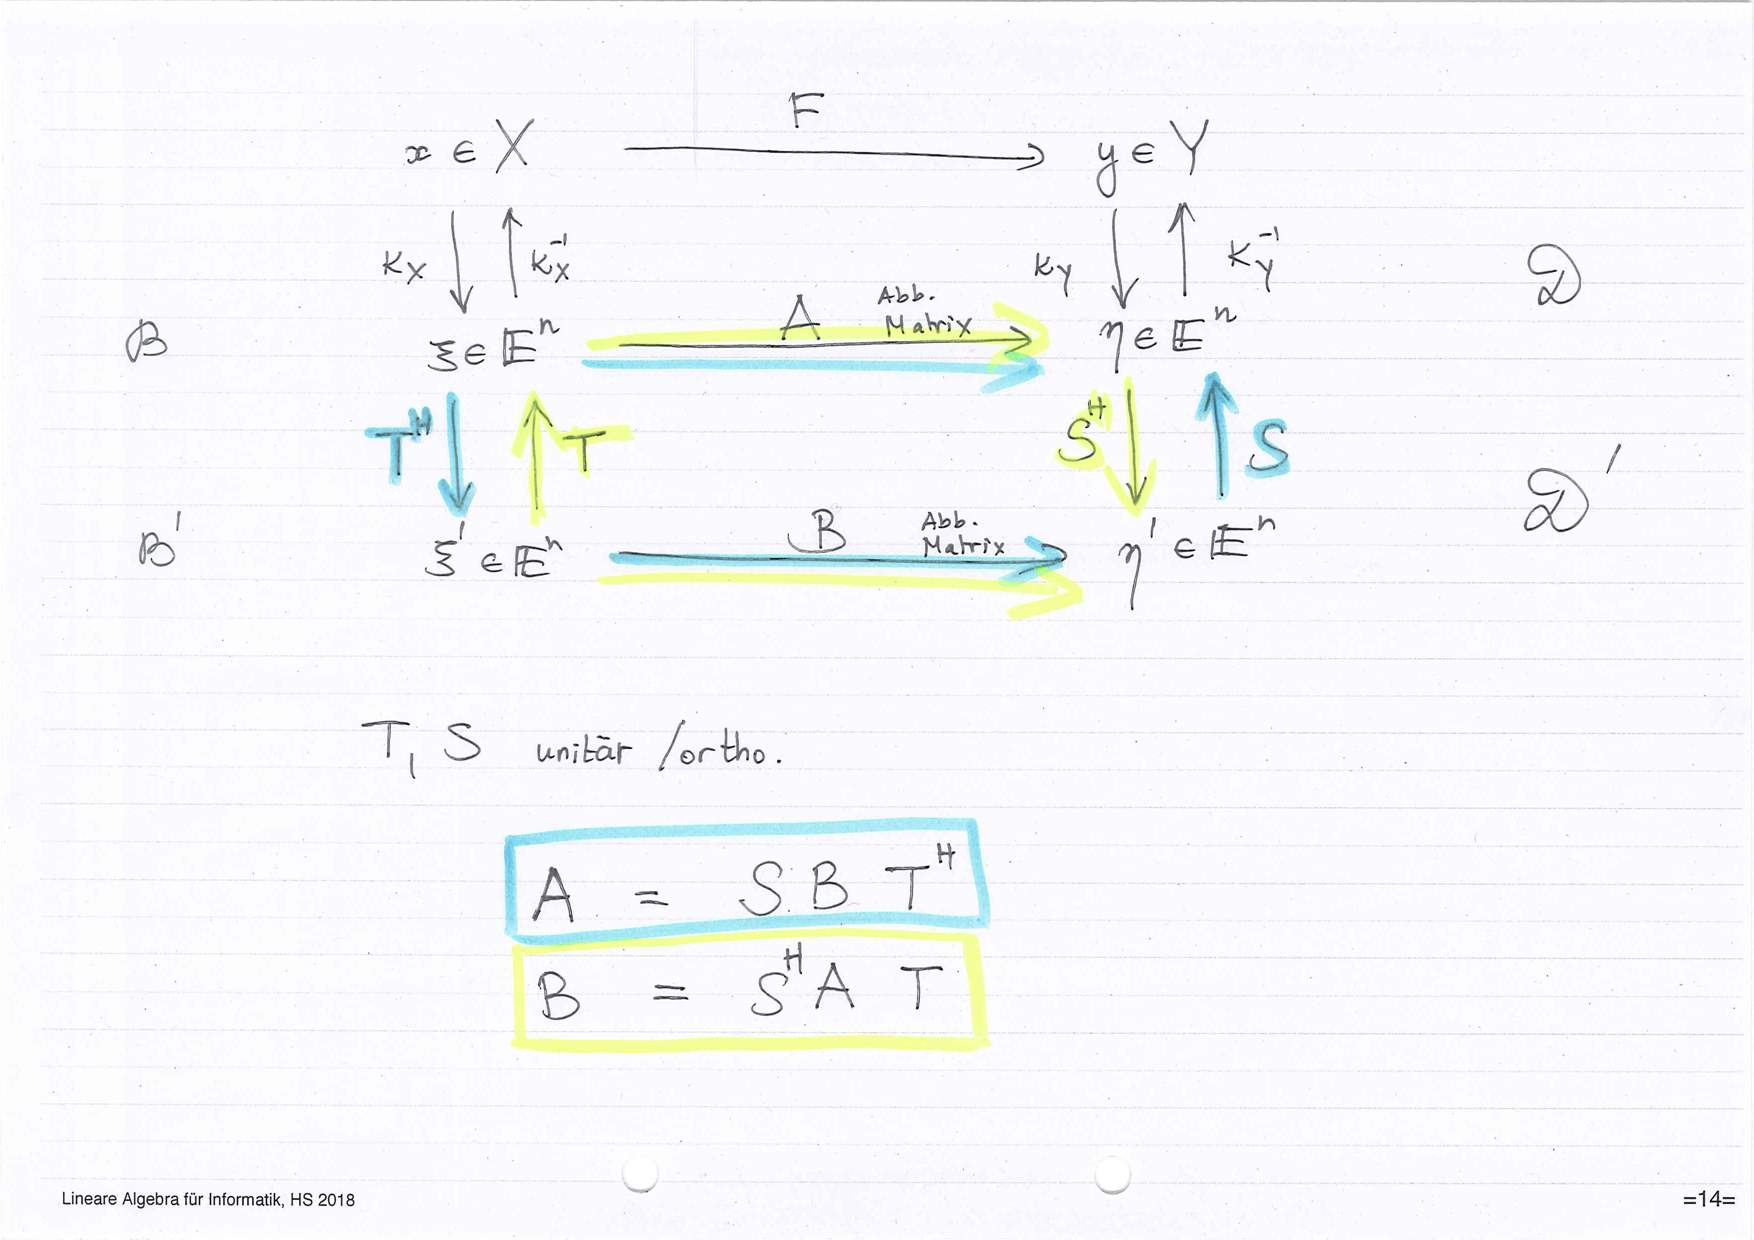 F
x ∈ X → y ∈ Y
κ_X κ_X^{-1} κ_Y κ_Y^{-1}
𝓓
A Abb.
Matrix
𝓑 ξ ∈ 𝔼^n η ∈ 𝔼^n
T^H T S^H S
𝓓'
B Abb.
Matrix
𝓑' ξ' ∈ 𝔼^n η' ∈ 𝔼^n
T, S unitär /ortho.
A = S B T^H
B = S^H A T
Lineare Algebra für Informatik, HS 2018
=14=